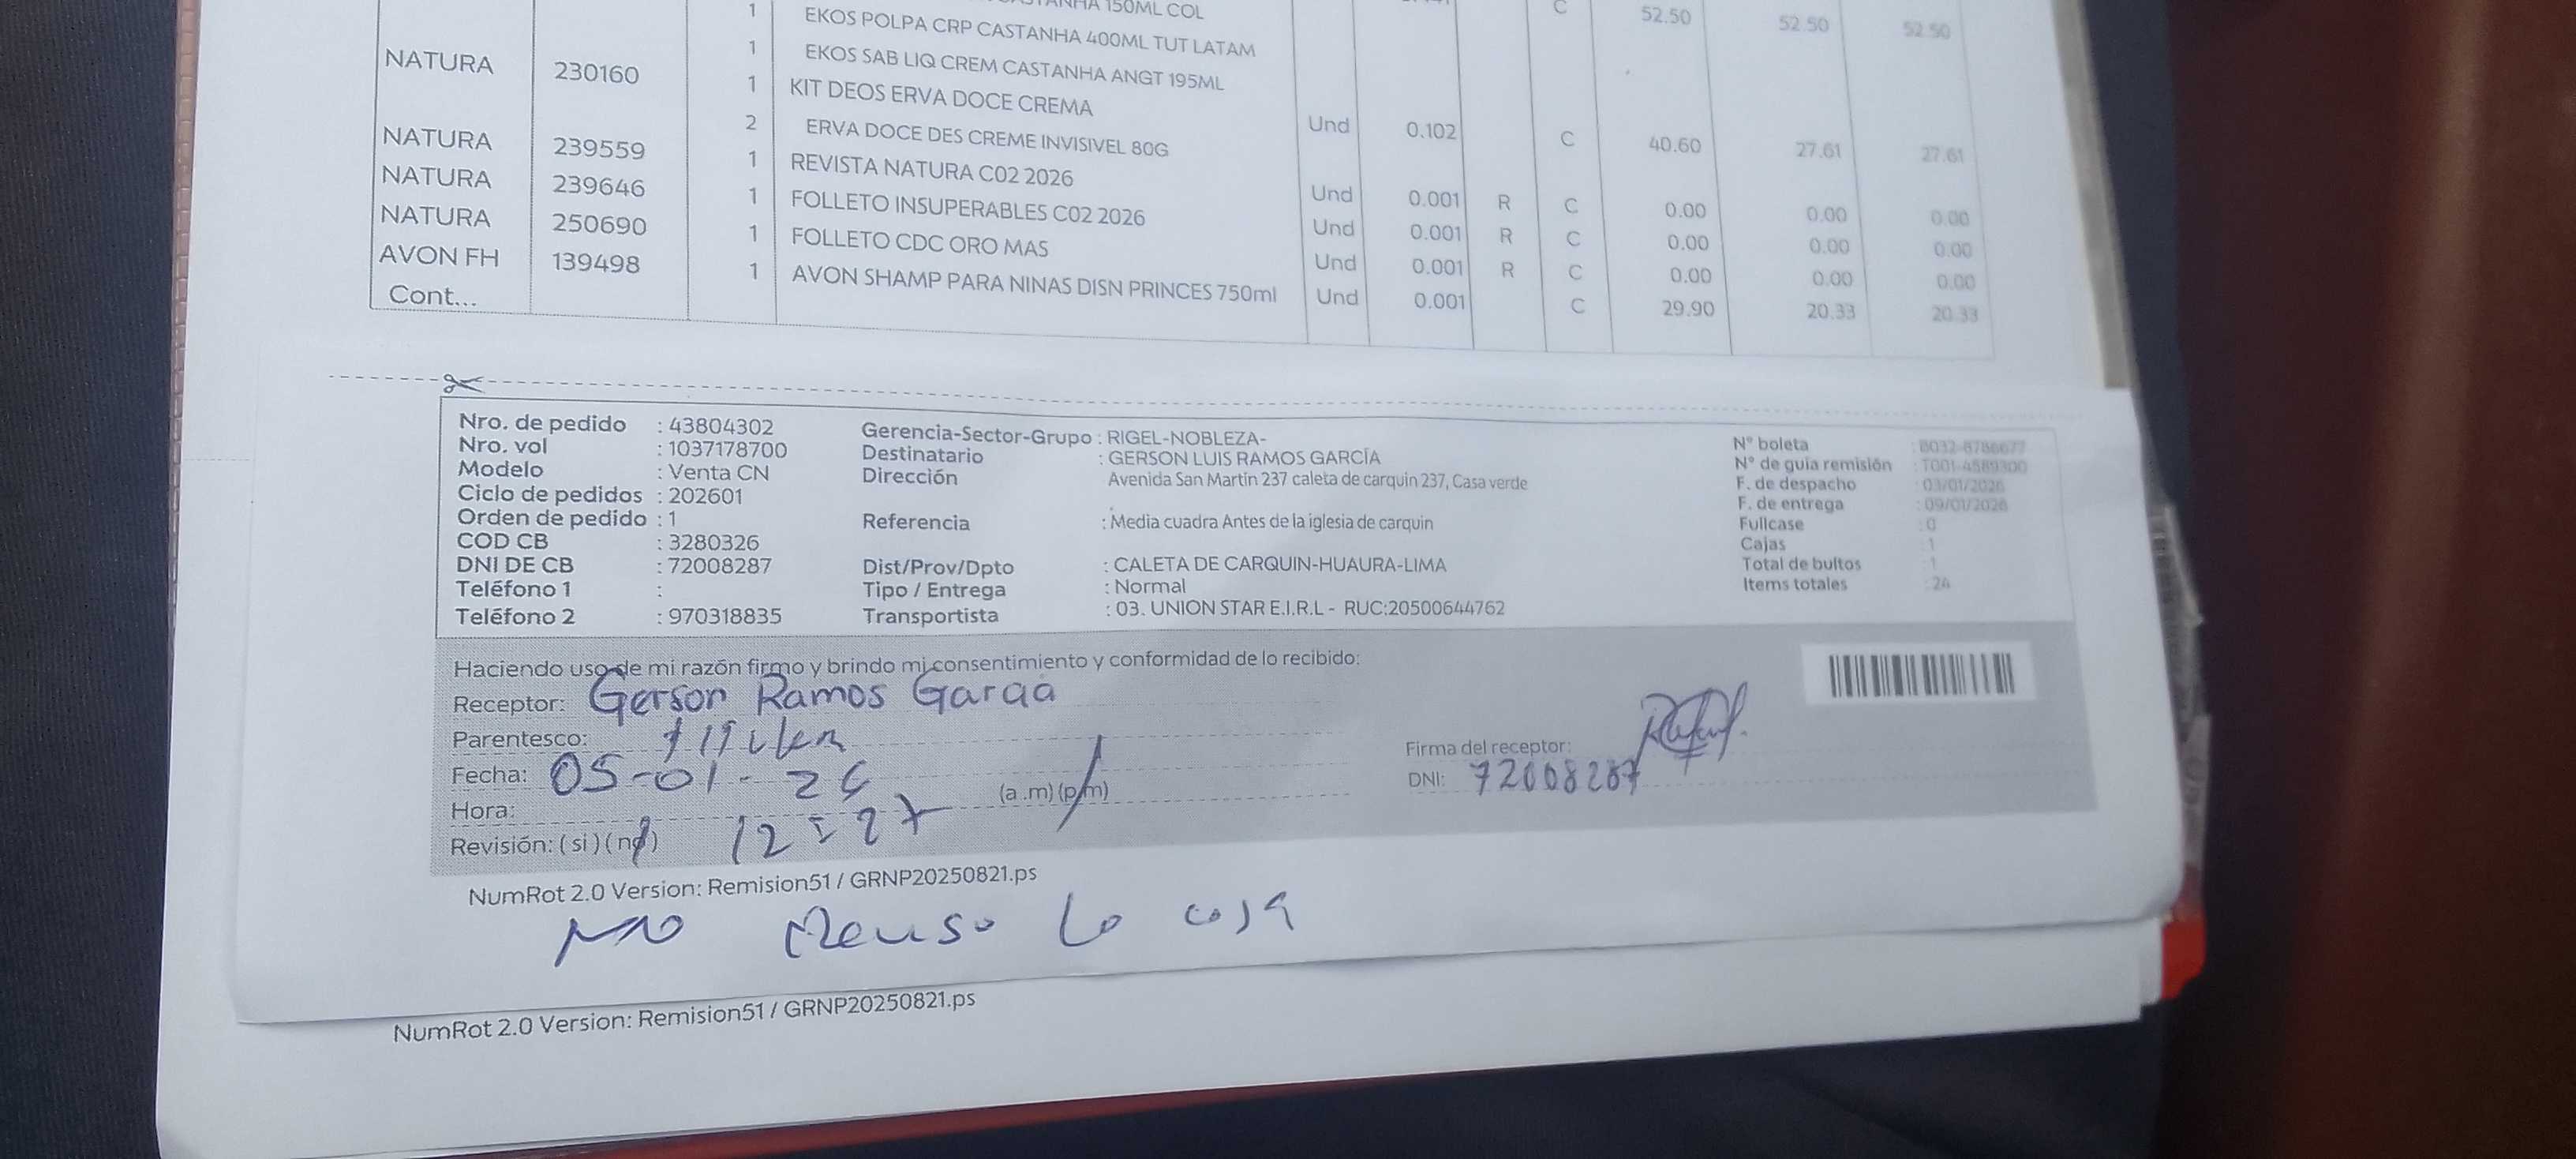 CASTANHA 150ML COL
1 EKOS POLPA CRP CASTANHA 400ML TUT LATAM C 52.50 52.50 52.50
1 EKOS SAB LIQ CREM CASTANHA ANGT 195ML
NATURA 230160 1 KIT DEOS ERVA DOCE CREMA Und 0.102 C 40.60 27.61 27.61
2 ERVA DOCE DES CREME INVISIVEL 80G
NATURA 239559 1 REVISTA NATURA C02 2026 Und 0.001 R C 0.00 0.00 0.00
NATURA 239646 1 FOLLETO INSUPERABLES C02 2026 Und 0.001 R C 0.00 0.00 0.00
NATURA 250690 1 FOLLETO CDC ORO MAS Und 0.001 R C 0.00 0.00 0.00
AVON FH 139498 1 AVON SHAMP PARA NINAS DISN PRINCES 750ml Und 0.001 C 29.90 20.33 20.33
Cont...
Nro. de pedido : 43804302
Nro. vol : 1037178700
Modelo : Venta CN
Ciclo de pedidos : 202601
Orden de pedido : 1
COD CB : 3280326
DNI DE CB : 72008287
Teléfono 1 :
Teléfono 2 : 970318835
Gerencia-Sector-Grupo : RIGEL-NOBLEZA-
Destinatario : GERSON LUIS RAMOS GARCÍA
Dirección Avenida San Martín 237 caleta de carquin 237, Casa verde
Referencia : Media cuadra Antes de la iglesia de carquin
Dist/Prov/Dpto : CALETA DE CARQUIN-HUAURA-LIMA
Tipo / Entrega : Normal
Transportista : 03. UNION STAR E.I.R.L - RUC:20500644762
N° boleta : B032-8786677
N° de guía remisión : T001-4589300
F. de despacho : 03/01/2026
F. de entrega : 09/01/2026
Fullcase : 0
Cajas : 1
Total de bultos : 1
Items totales : 24
Haciendo uso de mi razón firmo y brindo mi consentimiento y conformidad de lo recibido:
Receptor: Gerson Ramos Garcia
Parentesco:
Fecha: 05-01-26
Hora: 12:27 (a .m) (p.m)
Revisión: ( si ) ( no )
Firma del receptor:
DNI: 72008287
NumRot 2.0 Version: Remision51 / GRNP20250821.ps
NO lo
NumRot 2.0 Version: Remision51 / GRNP20250821.ps